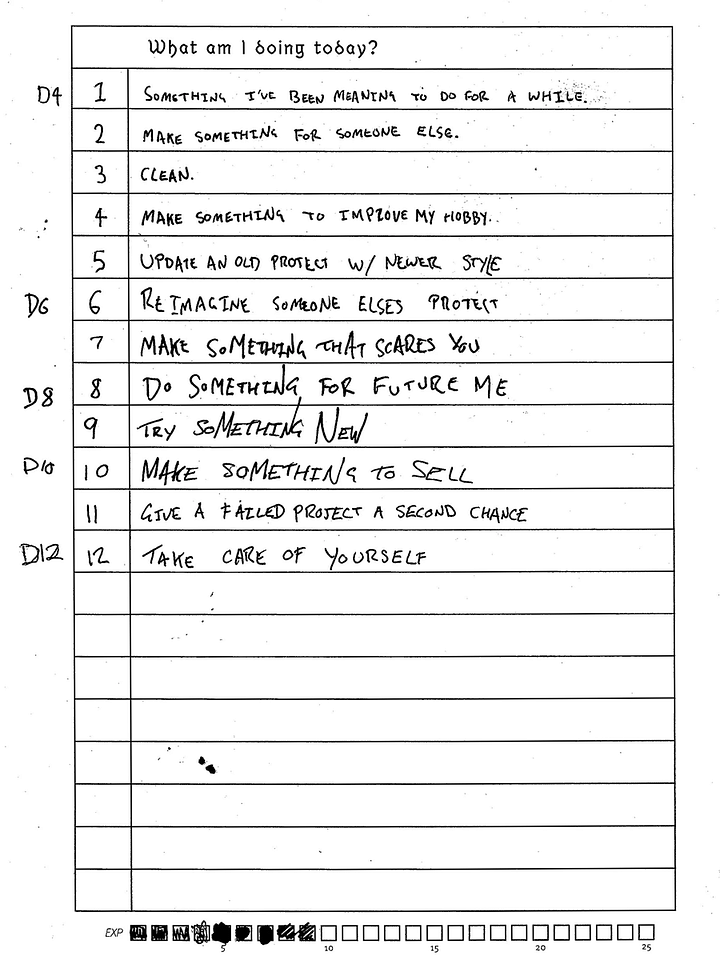 What am I doing today?
D4 1 SOMETHING I'VE BEEN MEANING TO DO FOR A WHILE.
2 MAKE SOMETHING FOR SOMEONE ELSE.
3 CLEAN.
4 MAKE SOMETHING TO IMPROVE MY HOBBY.
5 UPDATE AN OLD PROJECT W/ NEWER STYLE
D6 6 REIMAGINE SOMEONE ELSES PROJECT
7 MAKE SOMETHING THAT SCARES YOU
D8 8 DO SOMETHING FOR FUTURE ME
9 TRY SOMETHING NEW
D10 10 MAKE SOMETHING TO SELL
11 GIVE A FAILED PROJECT A SECOND CHANCE
D12 12 TAKE CARE OF YOURSELF
EXP
5 10 15 20 25